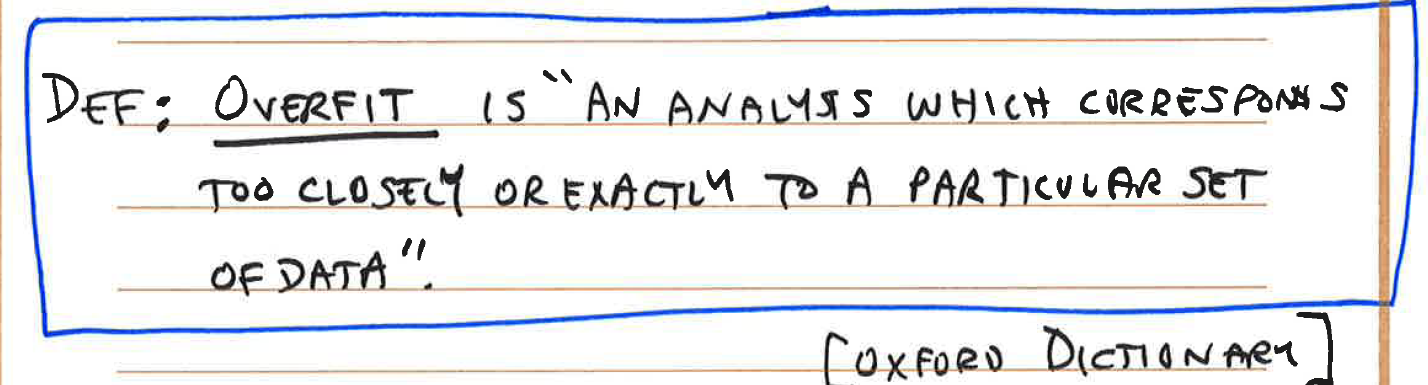 DEF: OVERFIT IS "AN ANALYSIS WHICH CORRESPONDS
TOO CLOSELY OR EXACTLY TO A PARTICULAR SET
OF DATA".
[OXFORD DICTIONARY]